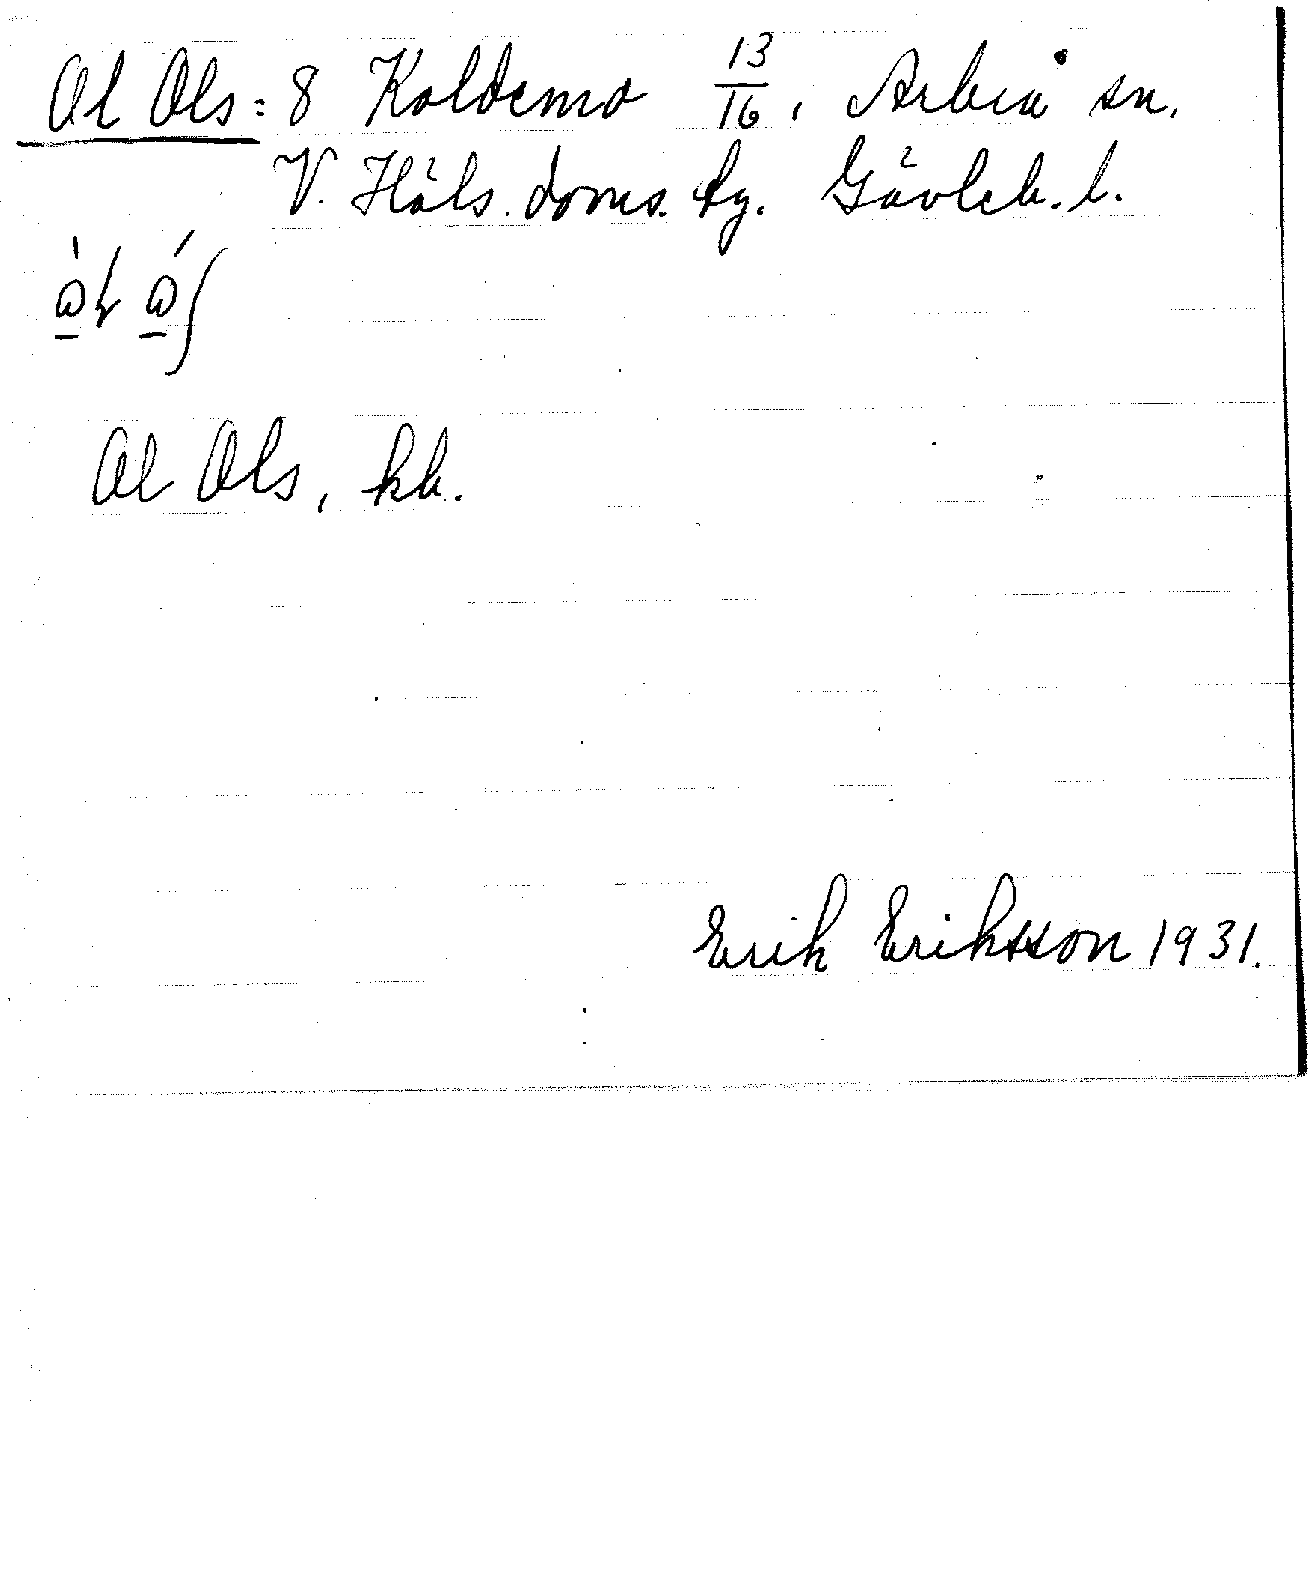 Ol Ols = 8 Koldemo 13/16, Arbrå sn.
V. Häls. doms. tg. Gävleb. l.
Ol Ols, kb.
Erik Eriksson 1931.